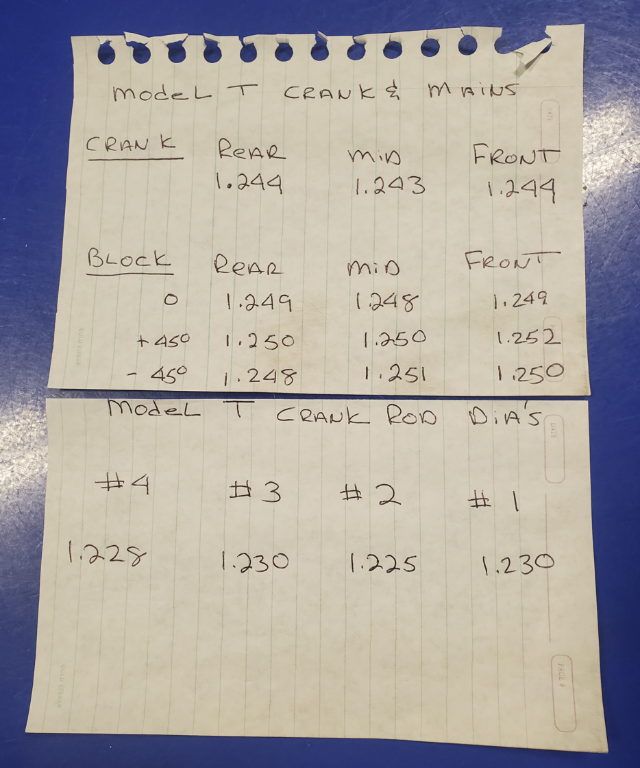 MODEL T CRANK & MAINS
CRANK REAR MID FRONT
1.244 1.243 1.244
BLOCK REAR MID FRONT
0 1.249 1.248 1.249
+45° 1.250 1.250 1.252
-45° 1.248 1.251 1.250
MODEL T CRANK ROD DIA'S
#4 #3 #2 #1
1.228 1.230 1.225 1.230